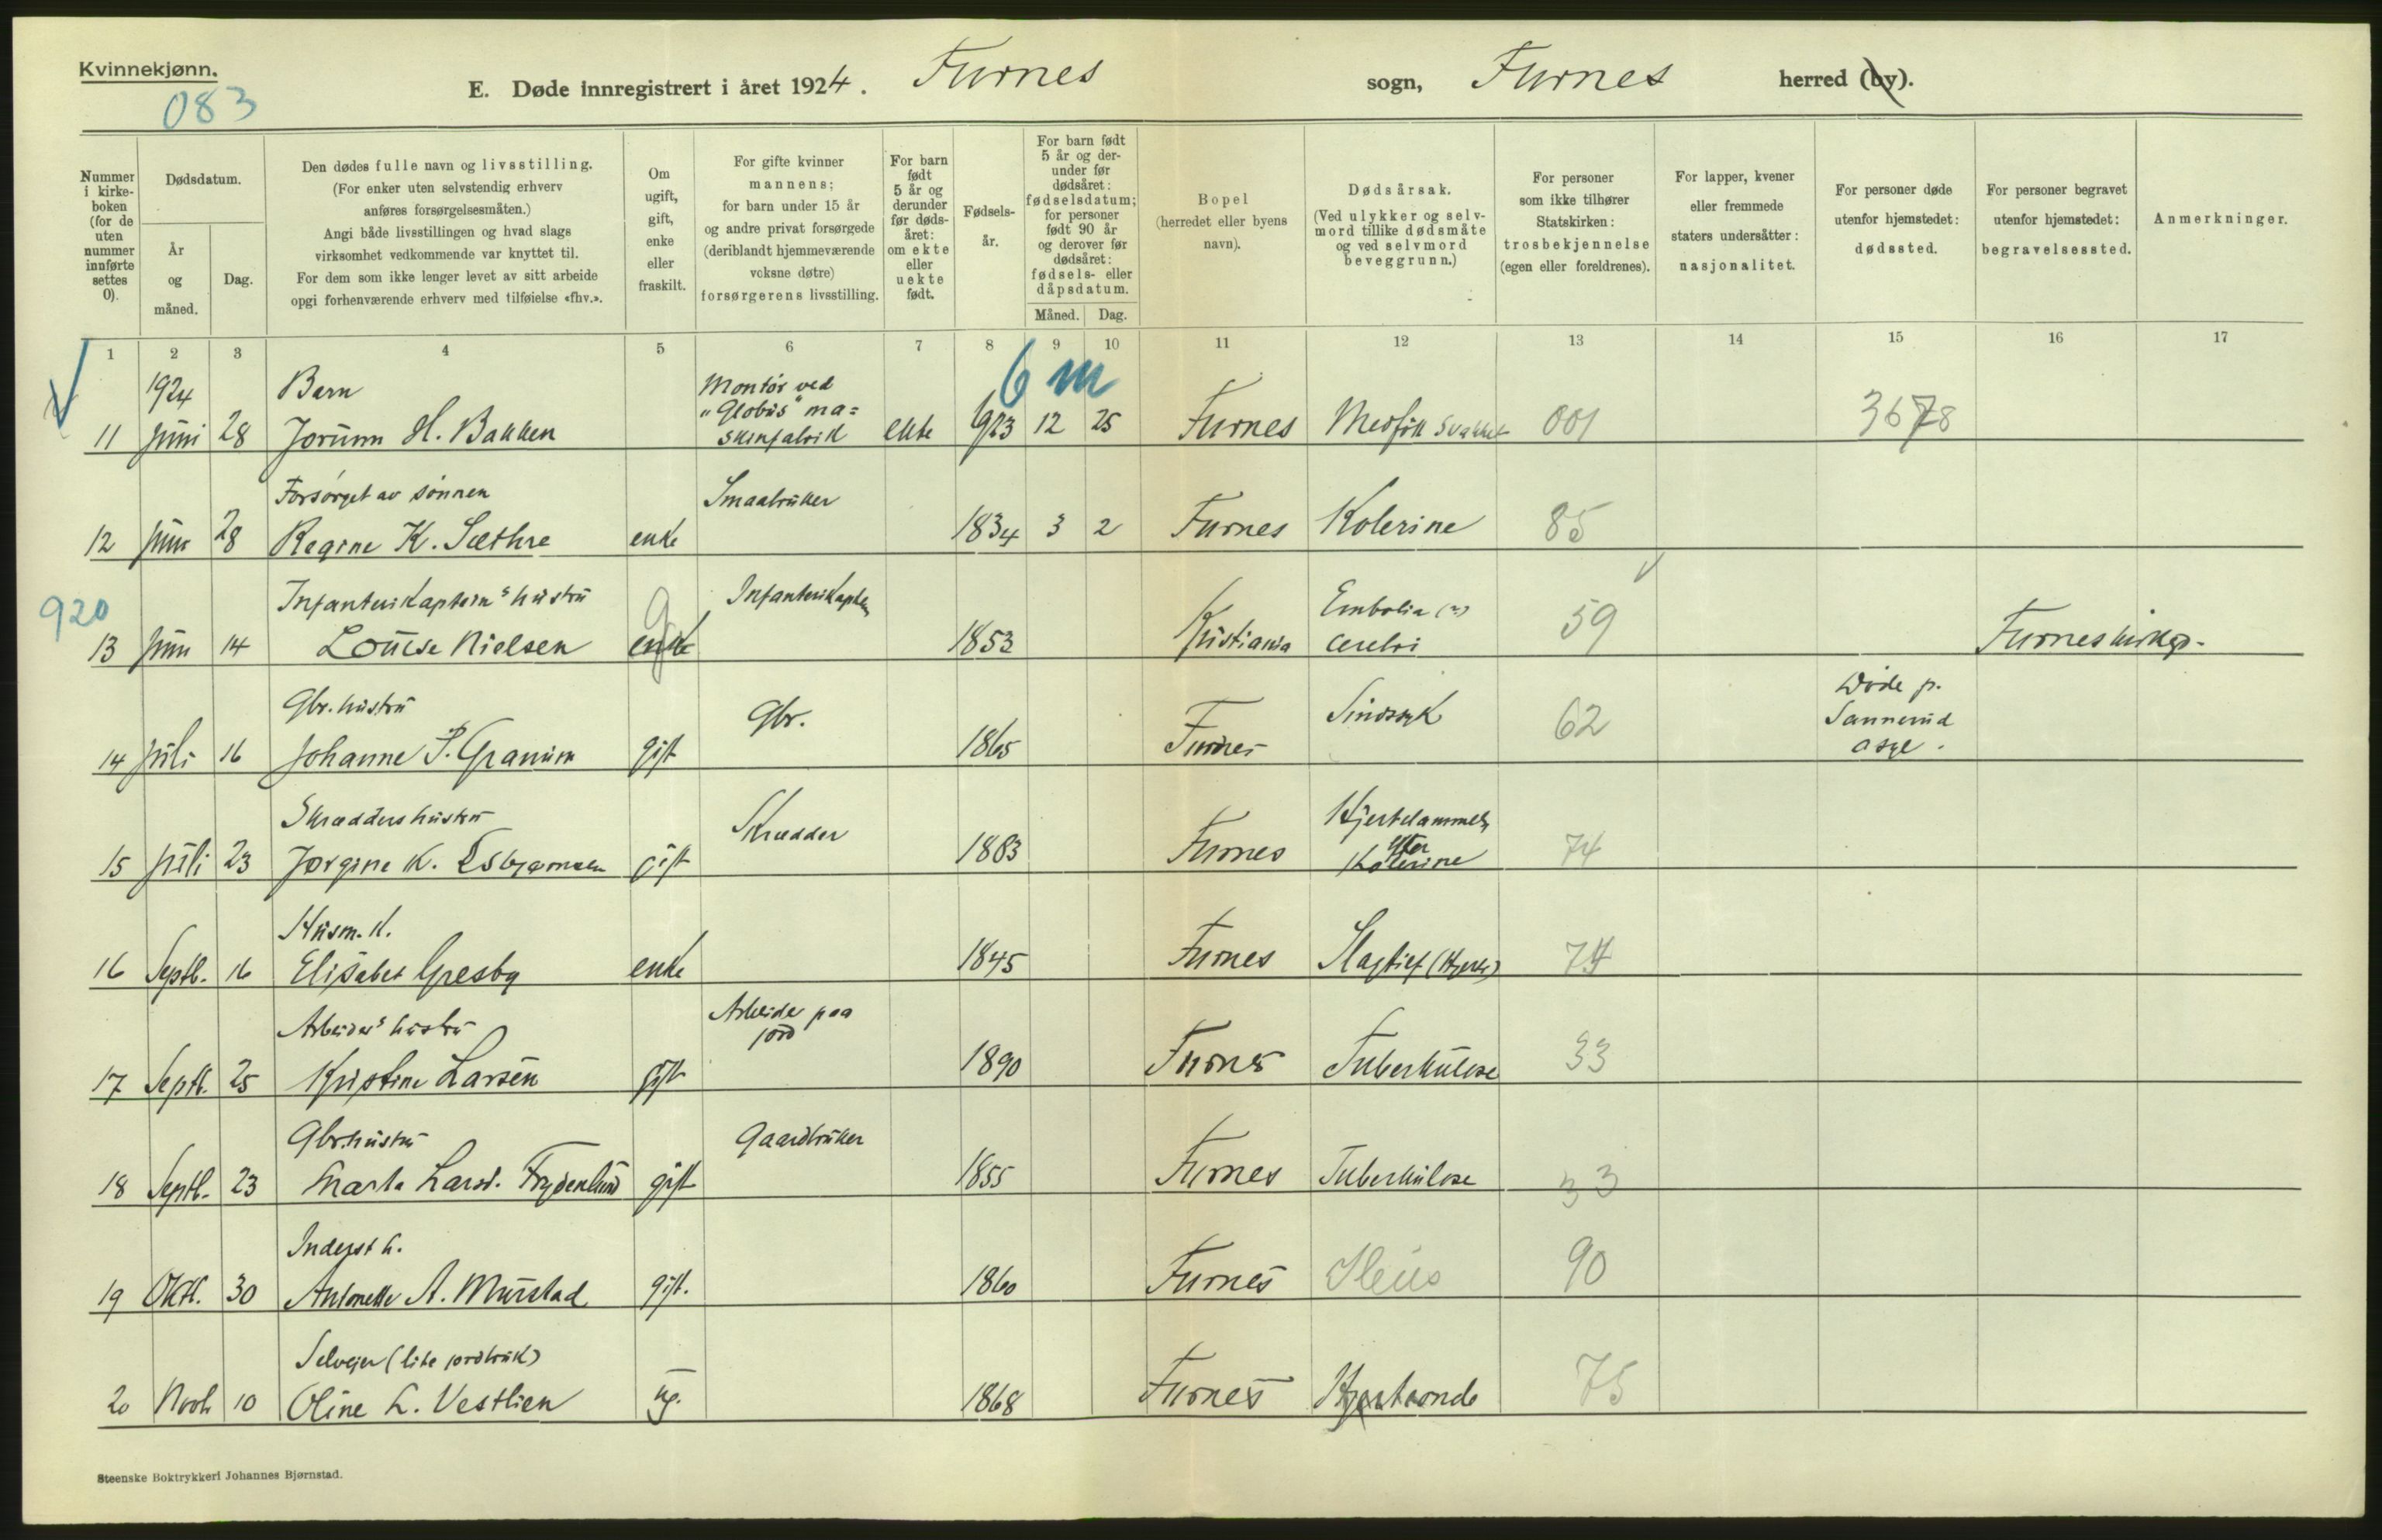 Kvinnekjønn.
083
E. Døde innregistrert i året 1924. Furnes sogn, Furnes herred (by).
Nummer i kirke-boken (for de uten nummer innførte settes 0).
Dødsdatum.
År og måned.
Dag.
Den dødes fulle navn og livsstilling.
(For enker uten selvstendig erhverv
anføres forsørgelsesmåten.)
Angi både livsstillingen og hvad slags
virksomhet vedkommende var knyttet til.
For dem som ikke lenger levet av sitt arbeide
opgi forhenværende erhverv med tilføielse «fhv.».
Om ugift, gift, enke eller fraskilt.
For gifte kvinner
mannens;
for barn under 15 år
og andre privat forsørgede
(deriblandt hjemmeværende
voksne døtre)
forsørgerens livsstilling.
For barn født 5 år og derunder før døds-året: om ekte eller uekte født.
Fødsels-år.
For barn født 5 år og der-under før dødsåret: fødselsdatum; for personer født 90 år og derover før dødsåret: fødsels- eller dåpsdatum.
Måned. Dag.
Bopel
(herredet eller byens
navn).
Dødsårsak.
(Ved ulykker og selv-
mord tillike dødsmåte
og ved selvmord
beveggrunn.)
For personer
som ikke tilhører
Statskirken:
trosbekjennelse
(egen eller foreldrenes).
For lapper, kvener
eller fremmede
staters undersåtter:
nasjonalitet.
For personer døde
utenfor hjemstedet:
dødssted.
For personer begravet
utenfor hjemstedet:
begravelsessted.
Anmerkninger.
1 2 3 4 5 6 7 8 9 10 11 12 13 14 15 16 17
1924 Barn Montør ved 6 m
"Globus" ma=
11 Juni 28 Jorunn H. Bakken skinfabrik ekte 1923 12 25 Furnes Medfødt svakhet 001 3678
Forsørget av sønnen Smaabruker
12 Juni 28 Regine K. Sæthre enke 1834 3 2 Furnes Kolerine 85
920 Infanterikaptein's hustru Infanterikaptein Embolia (?)
13 Juni 14 Louise Nielsen enke g 1853 Kristiania cerebri 59 Furnes kirkeg.
Gbr. hustru Gbr. Sindssyk Døde p.
Sannerud
14 Juli 16 Johanne P. Granum gift 1865 Furnes 62 asyl.
Skrædders hustru Skrædder Hjertelammelse
efter
15 Juli 23 Jørgine K. Esbjørnsen gift 1883 Furnes Kolerine 74
Husm. K.
16 Septb. 16 Elisabet Gresby enke 1845 Furnes Slagtilf (Hjerte) 74
Arbeider's hustru Arbeider paa
jord
17 Septb. 25 Kristine Larsen gift 1890 Furnes Tuberkulose 33
Gbr. hustru Gaardbruker
18 Septb. 23 Marta Larsd. Frydenlund gift 1855 Furnes Tuberkulose 33
Inderst h.
19 Oktb. 30 Antonette A. Murstad gift. 1860 Furnes Ileus 90
Selveier (lite jordbruk)
20 Novb 10 Oline L. Vestlien ug. 1868 Furnes Hjerteonde 75
Steenske Boktrykkeri Johannes Bjørnstad.